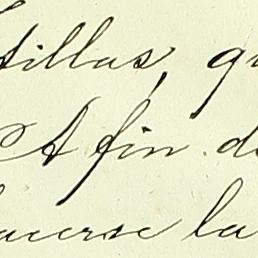 tillas, qu
A fin de
acerse la